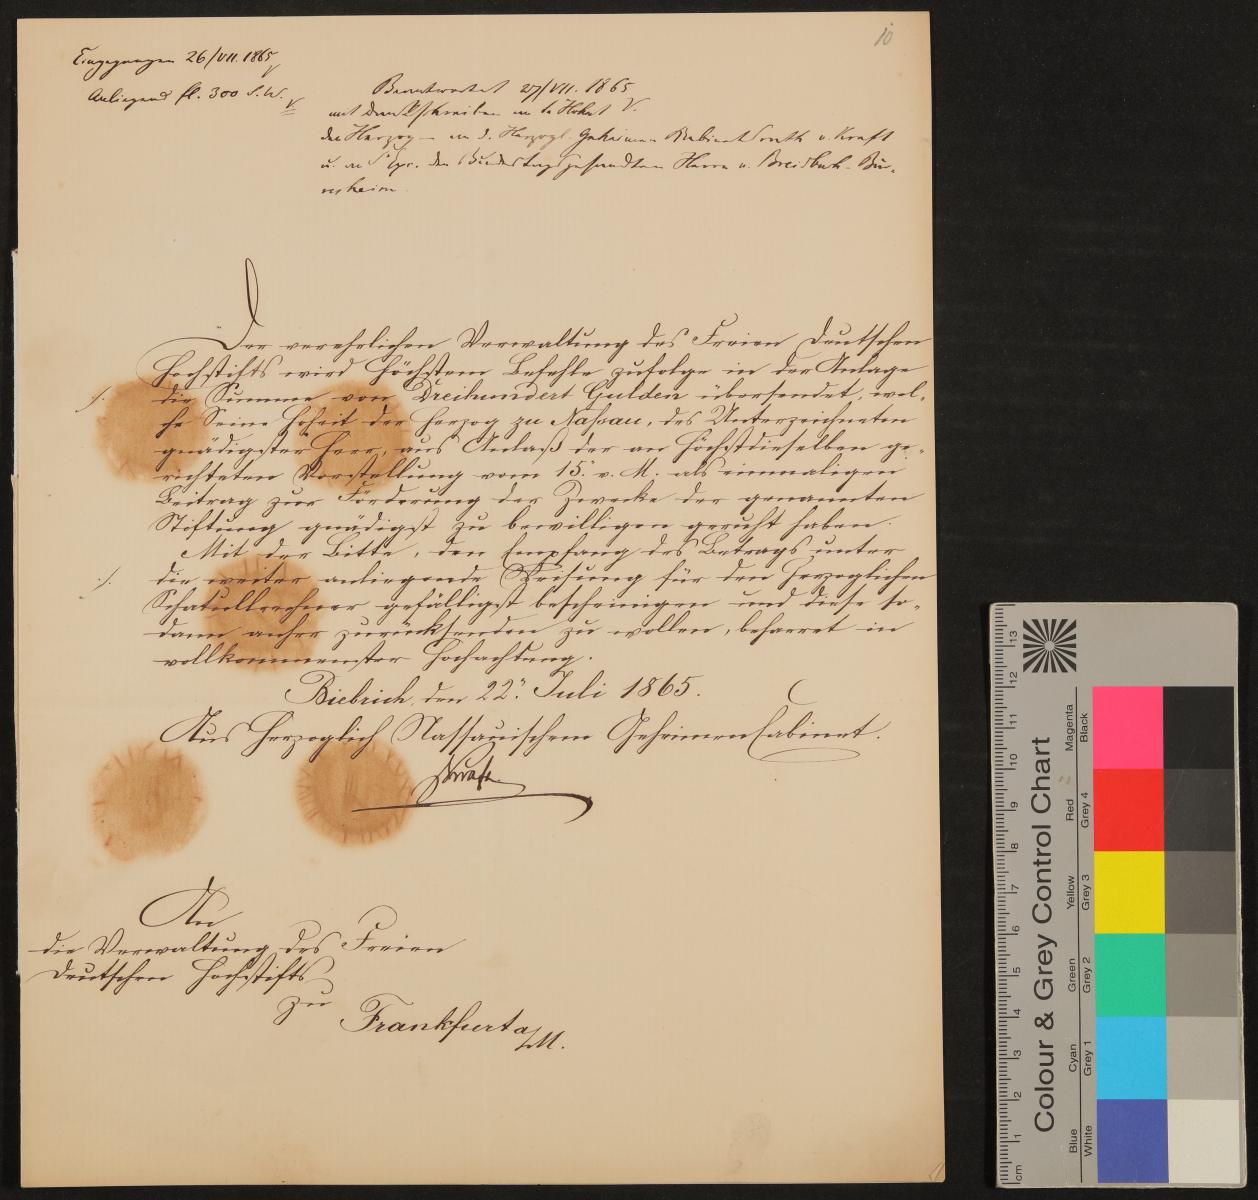 10
Eingegangen 26/VII. 1865
Anliegend fl. 300 S. W.
Beantwortet 27/VII. 1865
mit Dankschreiben an Se Hoheit
den Herzog – an d. Herzogl. Geheimen Kabinetsrath v. Kraft
u. an S. Exc. den Bundestagsgesandten Herrn v. Breidbach-Bü-
resheim.
Der verehrlichen Verwaltung des Freien Deutschen
Hochstifts wird Höchstem Befehle zufolge in der Anlage
die Summe von Dreihundert Gulden übersendet, wel-
che Seine Hoheit der Herzog zu Nassau, des Unterzeichneten
gnädigster Herr, aus Anlaß der an Höchstdieselben ge-
richteten Vorstellung vom 15. v. M. als einmaligen
Beitrag zur Förderung der Zwecke der genannten
Stiftung gnädigst zu bewilligen geruht haben.
Mit der Bitte, den Empfang des Betrags unter
die weiter anliegende Weisung für den Herzoglichen
Schatullrechner gefälligst bescheinigen und diese so-
dann anher zurücksenden zu wollen, beharret in
vollkommenster Hochachtung.
Biebrich, den 22. Juli 1865.
Aus Herzoglich Nassauischem Geheimen Cabinet.
Kraft
An
die Verwaltung des Freien
Deutschen Hochstifts
zu
Frankfurt a/M.
Colour & Grey Control Chart
Blue Cyan Green Yellow Red Magenta
White Grey 1 Grey 2 Grey 3 Grey 4 Black
cm 1 2 3 4 5 6 7 8 9 10 11 12 13